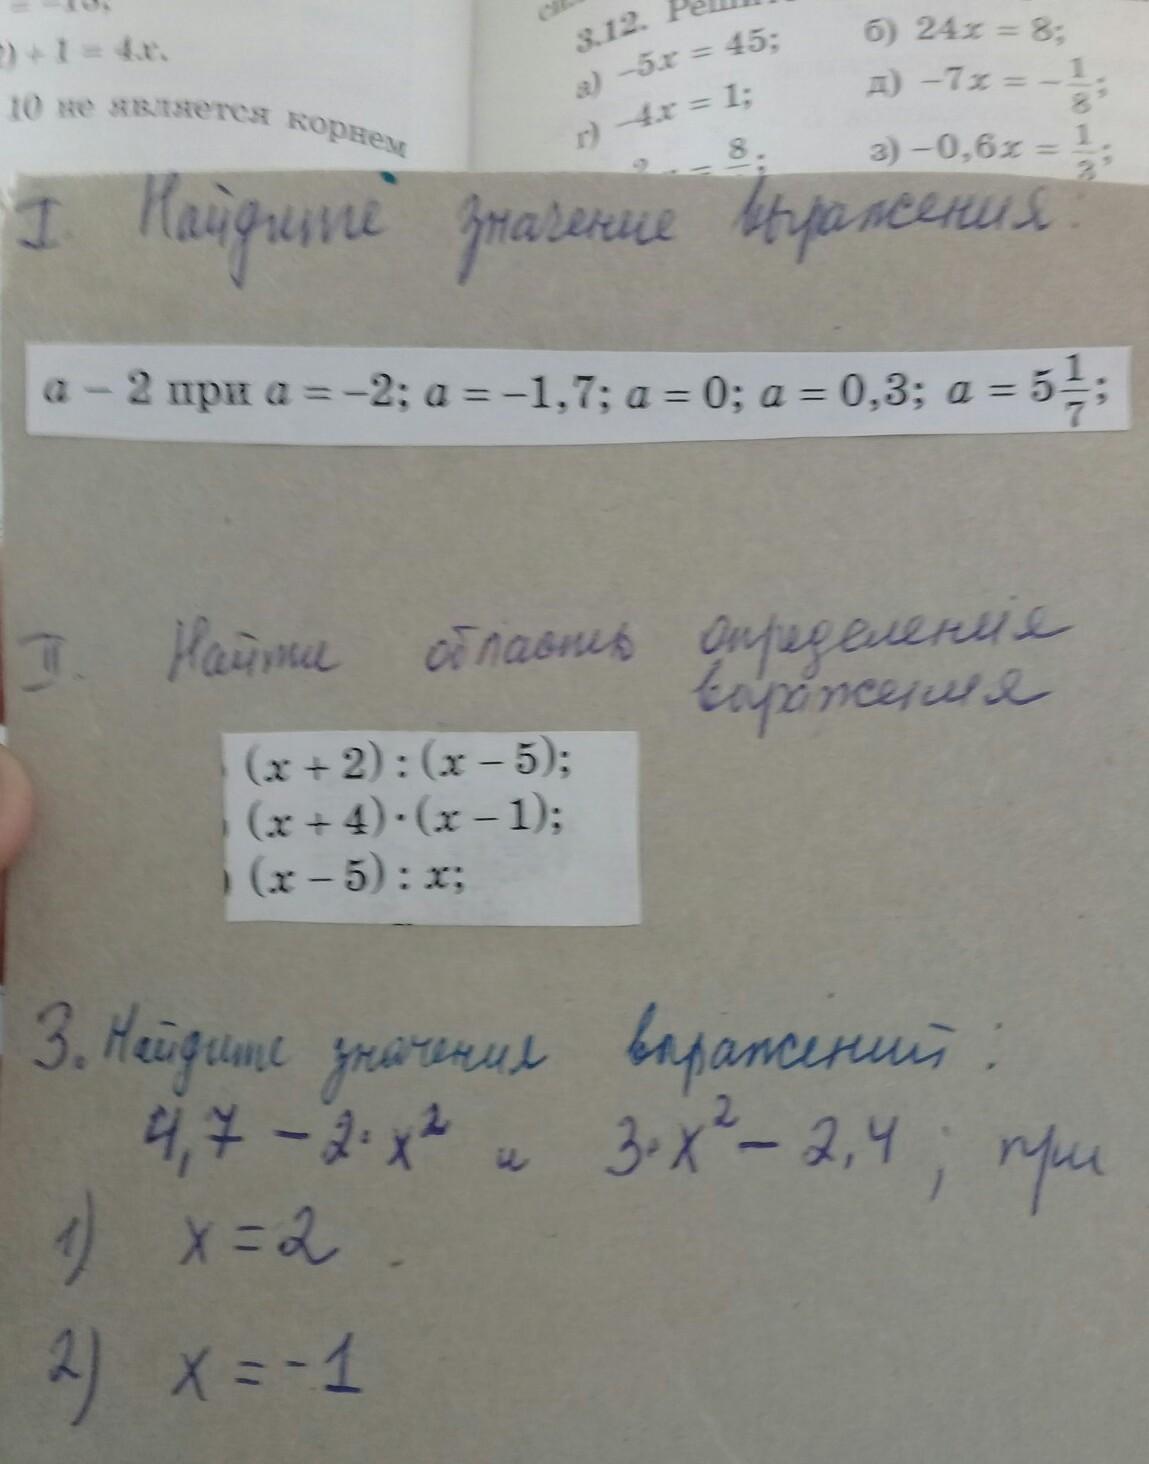 ) + 1 = 4x.
10 не является корнем
3.12.
а) −5x = 45;
б) 24x = 8;
г) −4x = 1;
д) −7x = −1/8;
8
з) −0,6x = 1/3;
I. Найдите значение выражения:
a − 2 при a = −2; a = −1,7; a = 0; a = 0,3; a = 5 1/7;
II. Найти область определения
выражения
(x + 2) : (x − 5);
(x + 4) · (x − 1);
(x − 5) : x;
3. Найдите значения выражений:
4,7 − 2·x² и 3·x² − 2,4; при
1) x = 2
2) x = −1